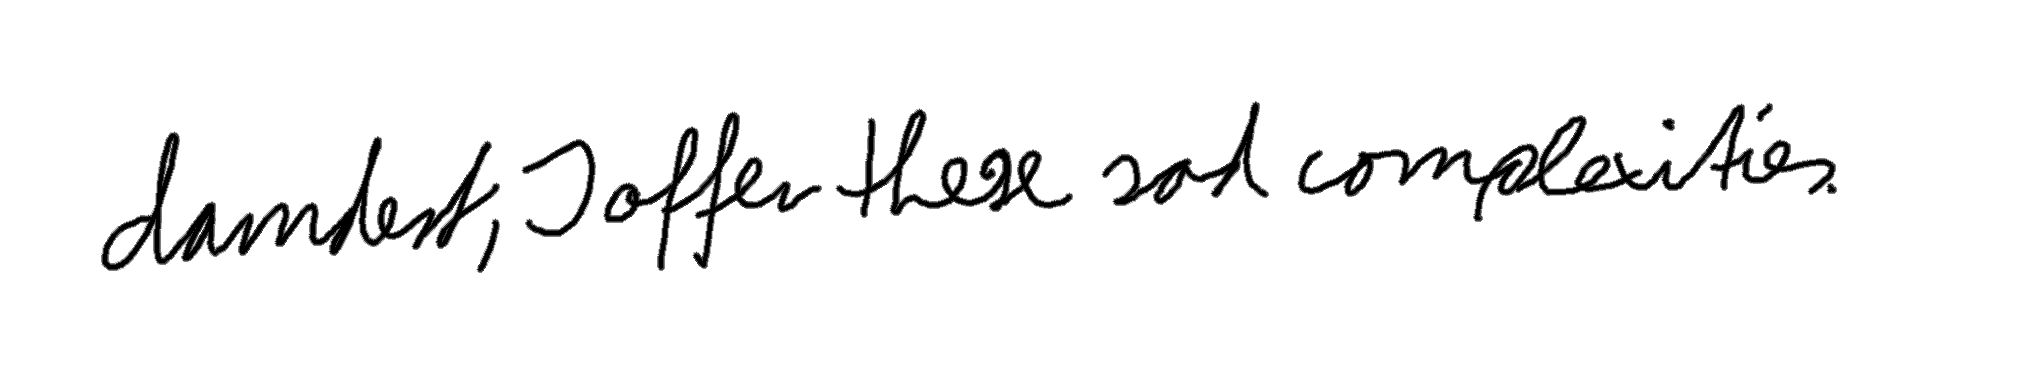 damdest, I offer these sad complexities.